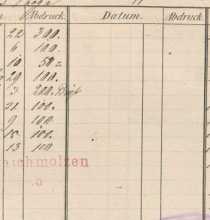 Abdruck. Datum. Abdruck
22 300.
6 100.
10 50
20 100.
3 200.
21 100.
9 100.
15 100.
13 100
eschmolzen